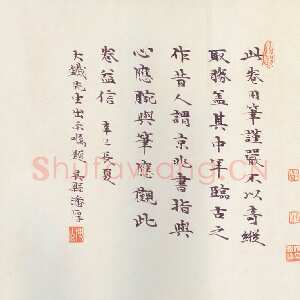 此卷用筆謹嚴不以奇縱
取勝蓋其中年臨古之
作昔人謂京兆書指與
心應腕與筆應觀此
卷益信 辛巳長夏
大鐵先生出示囑題吳縣潘厚
Shufawang.CN